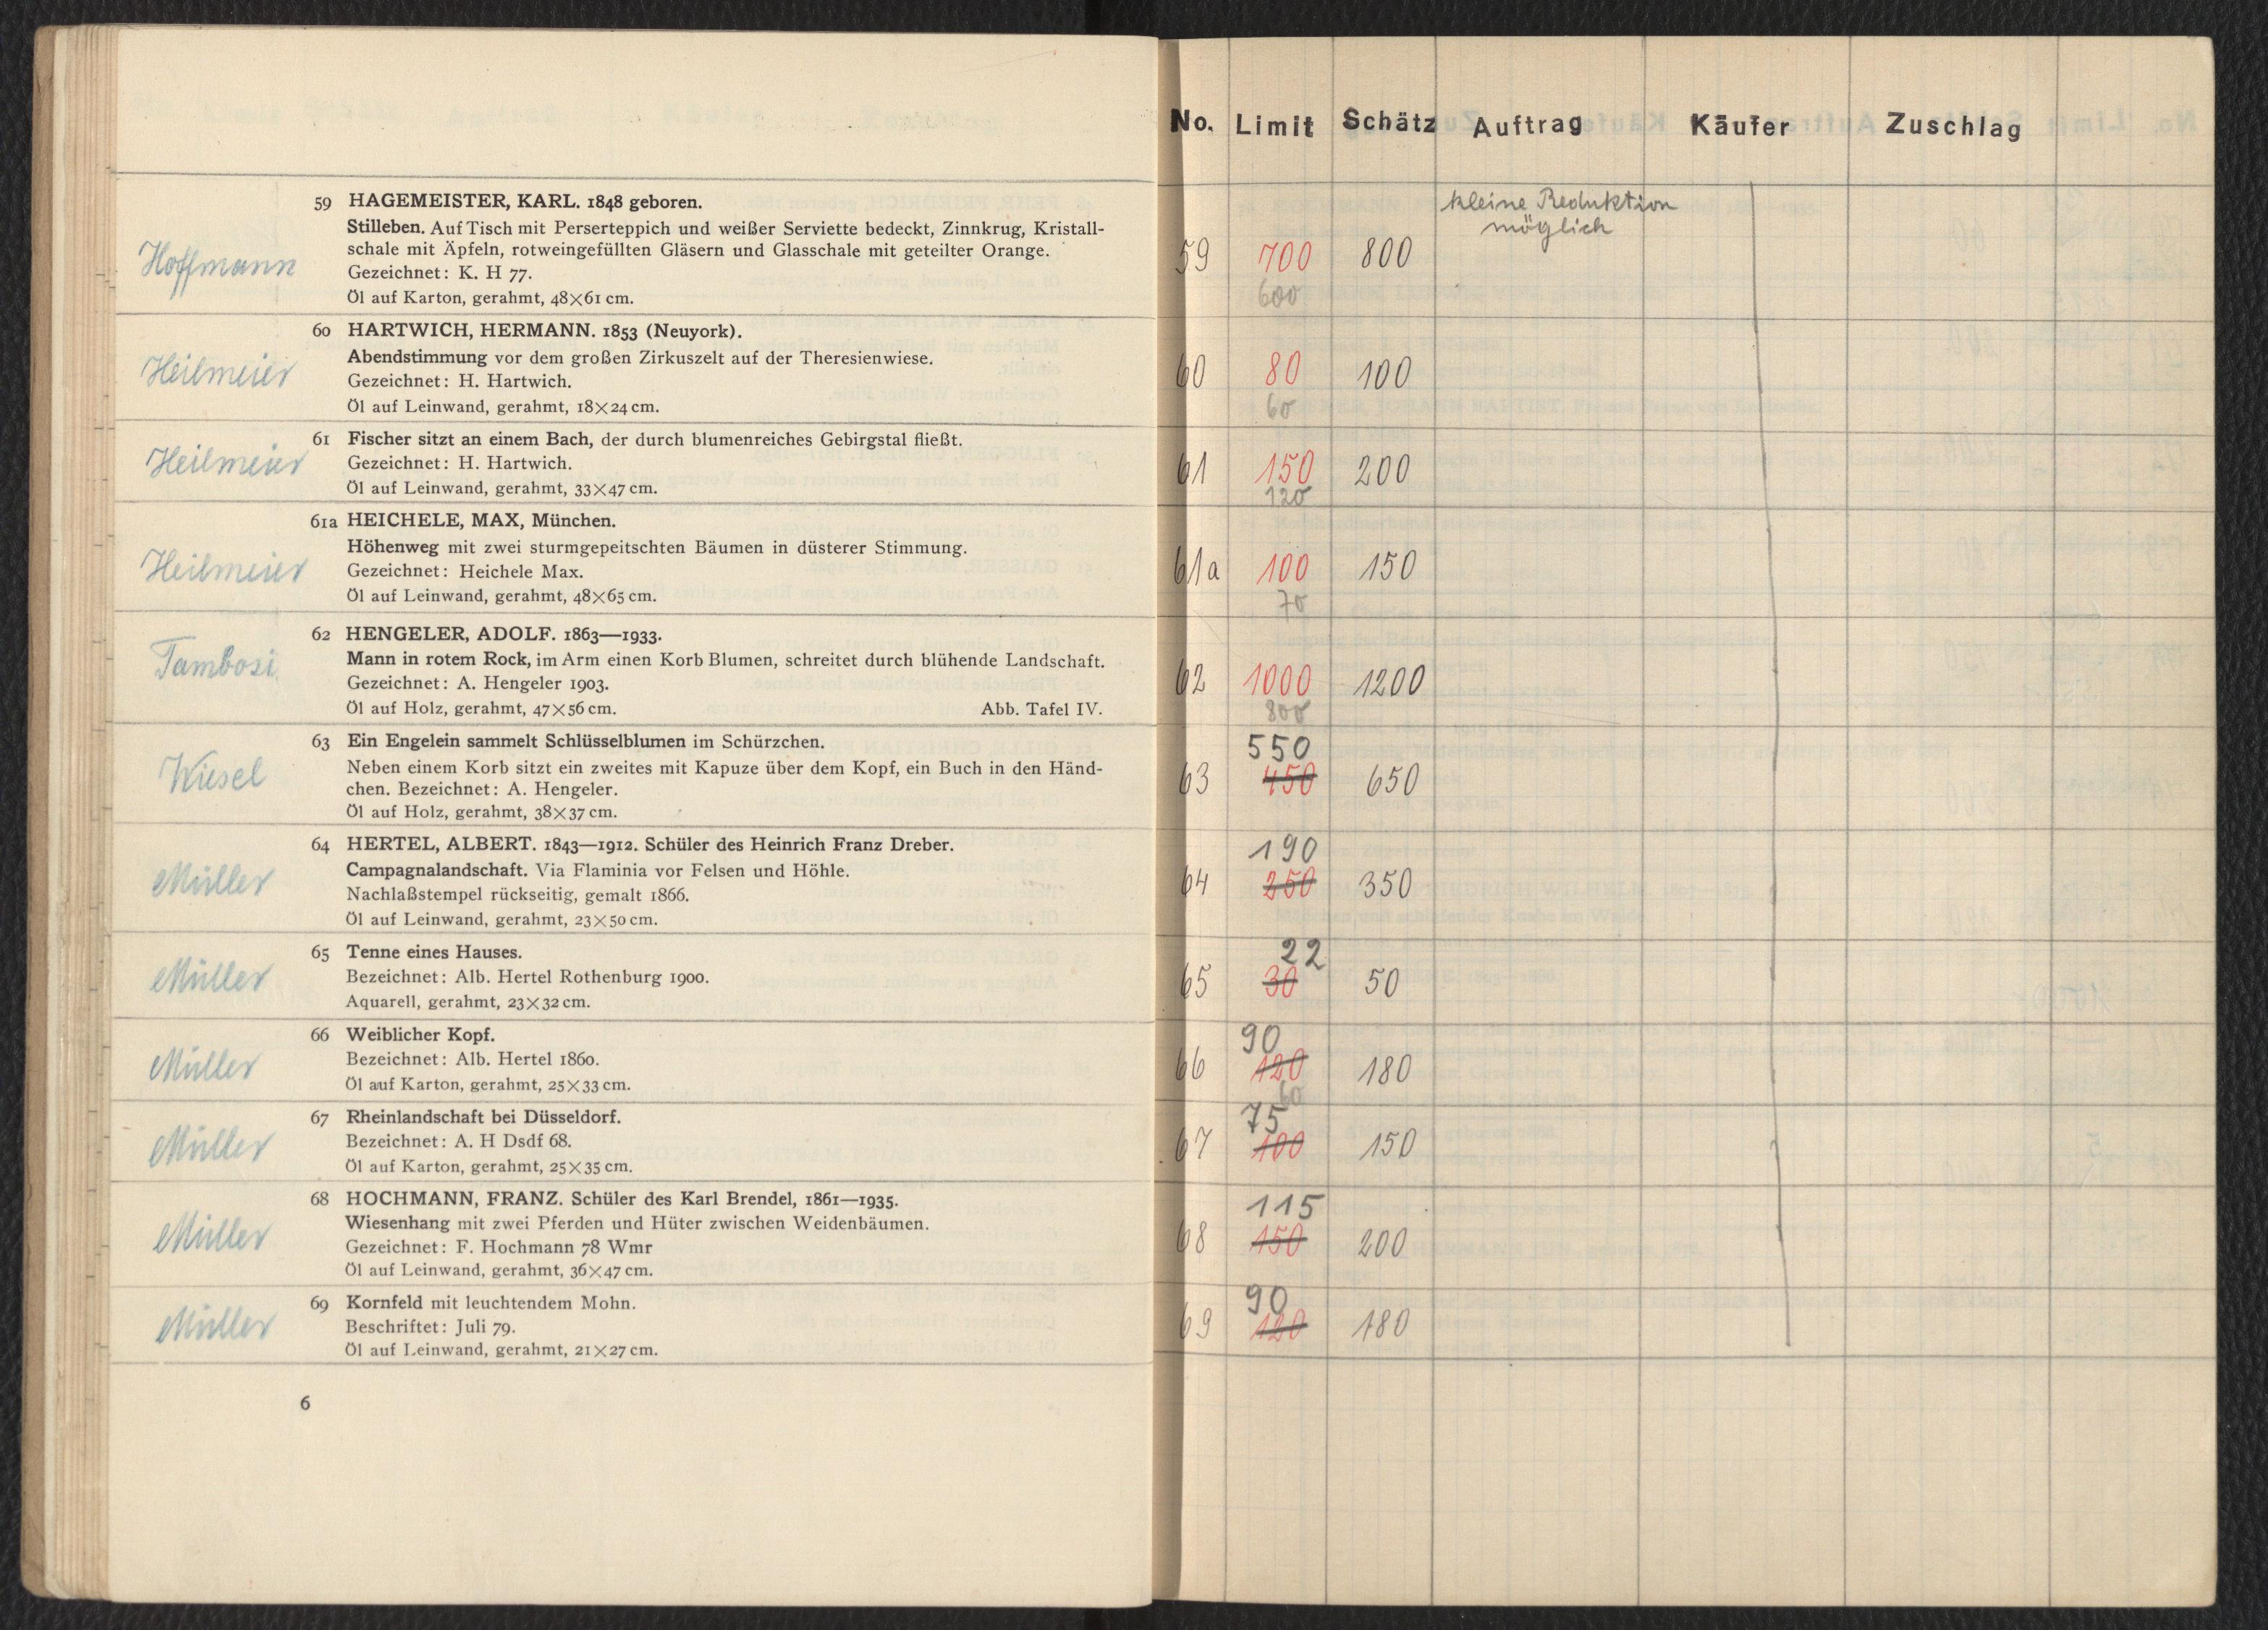 59 HAGEMEISTER, KARL. 1848 geboren.
Stilleben. Auf Tisch mit Perserteppich und weißer Serviette bedeckt, Zinnkrug, Kristall-
schale mit Äpfeln, rotweingefüllten Gläsern und Glasschale mit geteilter Orange.
Hoffmann
Gezeichnet: K. H 77.
Öl auf Karton, gerahmt, 48×61 cm.
60 HARTWICH, HERMANN. 1853 (Neuyork).
Abendstimmung vor dem großen Zirkuszelt auf der Theresienwiese.
Heilmeier
Gezeichnet: H. Hartwich.
Öl auf Leinwand, gerahmt, 18×24 cm.
61 Fischer sitzt an einem Bach, der durch blumenreiches Gebirgstal fließt.
Heilmeier
Gezeichnet: H. Hartwich.
Öl auf Leinwand, gerahmt, 33×47 cm.
61a HEICHELE, MAX, München.
Höhenweg mit zwei sturmgepeitschten Bäumen in düsterer Stimmung.
Heilmeier
Gezeichnet: Heichele Max.
Öl auf Leinwand, gerahmt, 48×65 cm.
62 HENGELER, ADOLF. 1863—1933.
Tambosi
Mann in rotem Rock, im Arm einen Korb Blumen, schreitet durch blühende Landschaft.
Gezeichnet: A. Hengeler 1903.
Öl auf Holz, gerahmt, 47×56 cm. Abb. Tafel IV.
63 Ein Engelein sammelt Schlüsselblumen im Schürzchen.
Wiesel
Neben einem Korb sitzt ein zweites mit Kapuze über dem Kopf, ein Buch in den Händ-
chen. Bezeichnet: A. Hengeler.
Öl auf Holz, gerahmt, 38×37 cm.
64 HERTEL, ALBERT. 1843—1912. Schüler des Heinrich Franz Dreber.
Campagnalandschaft. Via Flaminia vor Felsen und Höhle.
Müller
Nachlaßstempel rückseitig, gemalt 1866.
Öl auf Leinwand, gerahmt, 23×50 cm.
65 Tenne eines Hauses.
Müller
Bezeichnet: Alb. Hertel Rothenburg 1900.
Aquarell, gerahmt, 23×32 cm.
66 Weiblicher Kopf.
Müller
Bezeichnet: Alb. Hertel 1860.
Öl auf Karton, gerahmt, 25×33 cm.
67 Rheinlandschaft bei Düsseldorf.
Müller
Bezeichnet: A. H Dsdf 68.
Öl auf Karton, gerahmt, 25×35 cm.
68 HOCHMANN, FRANZ. Schüler des Karl Brendel, 1861—1935.
Wiesenhang mit zwei Pferden und Hüter zwischen Weidenbäumen.
Müller
Gezeichnet: F. Hochmann 78 Wmr
Öl auf Leinwand, gerahmt, 36×47 cm.
69 Kornfeld mit leuchtendem Mohn.
Müller
Beschriftet: Juli 79.
Öl auf Leinwand, gerahmt, 21×27 cm.
6
No. Limit Schätz Auftrag Käufer Zuschlag
kleine Reduktion
möglich
59 700 800
600
60 80 100
60
61 150 200
120
61a 100 150
70
62 1000 1200
800
550
63 450 650
190
64 250 350
22
65 30 50
90
66 120 180
60
75
67 100 150
115
68 150 200
90
69 120 180